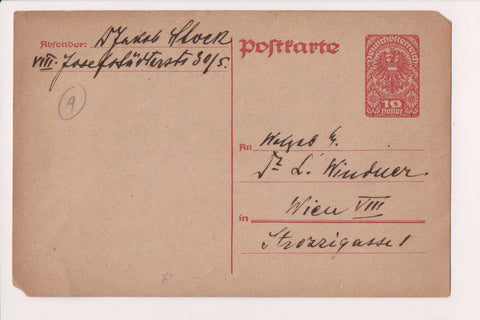 Absender: Dr Jakob Stock
VIII. Josefstädterstr 30/5.
9
Postkarte
Deutschösterreich
10
Heller
An
Dr. L. Windner
Wien VIII
in
Strozzigasse 1